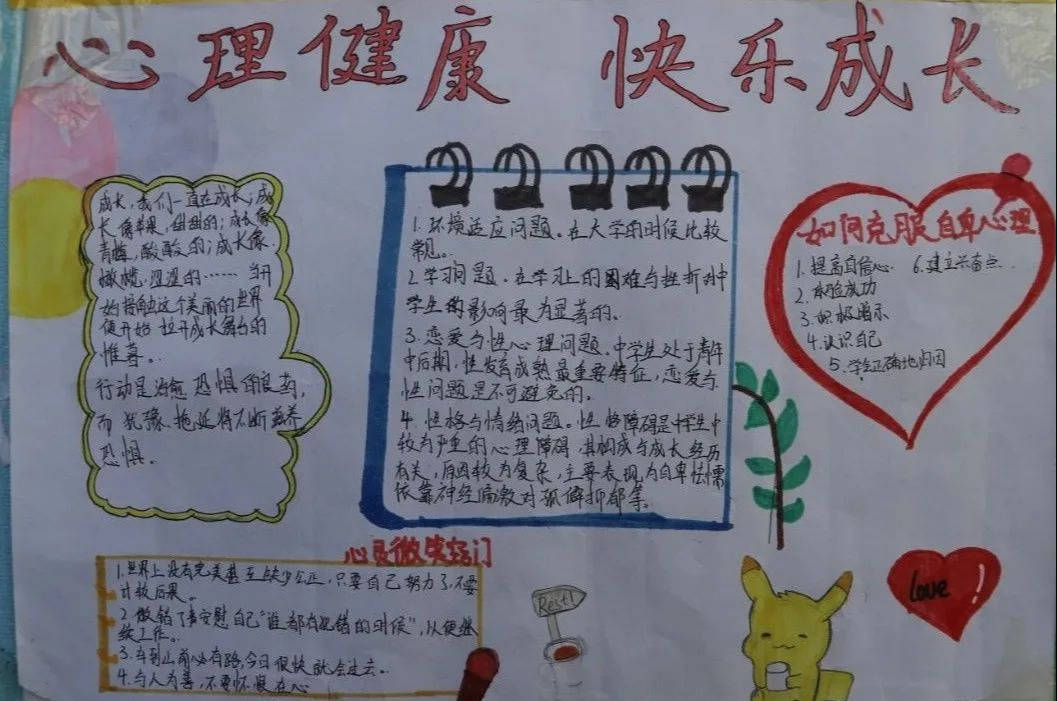 心理健康 快乐成长
成长,我们一直在成长;成
长像苹果,甜甜的;成长像
青梅,酸酸的;成长像
橄榄,涩涩的……当开
始接触这个美丽的世界
便开始拉开成长舞台的
帷幕。
行动是治愈恐惧的良药,
而犹豫、拖延将不断滋养
恐惧.
1.环境适应问题。在大学的时候比较
常见。
2.学习问题.在学习上的困难与挫折对中
学生的影响最为显著的.
3.恋爱与性心理问题.中学生处于青年
中后期,性发育成熟最重要特征,恋爱与
性问题是不可避免的.
4.性格与情绪问题。性格障碍是中学生中
较为严重的心理障碍,其构成与成长经历
有关,原因较为复杂,主要表现为自卑怯懦
依靠神经偏激对孤僻抑郁等。
如何克服自卑心理
1.提高自信心. 6.建立兴奋点.
2.体验成功
3.积极暗示
4.认识自己
5.学生正确地归因
心灵微笑窍门
1.世界上没有完美甚至缺少公正,只要自己努力了,不要
计较后果。
2.做错了事安慰自己"谁都有犯错的时候",从便继
续工作。
3.车到山前必有路,今日很快就会过去。
4.与人为善,不要怀恨在心
Rest!
love